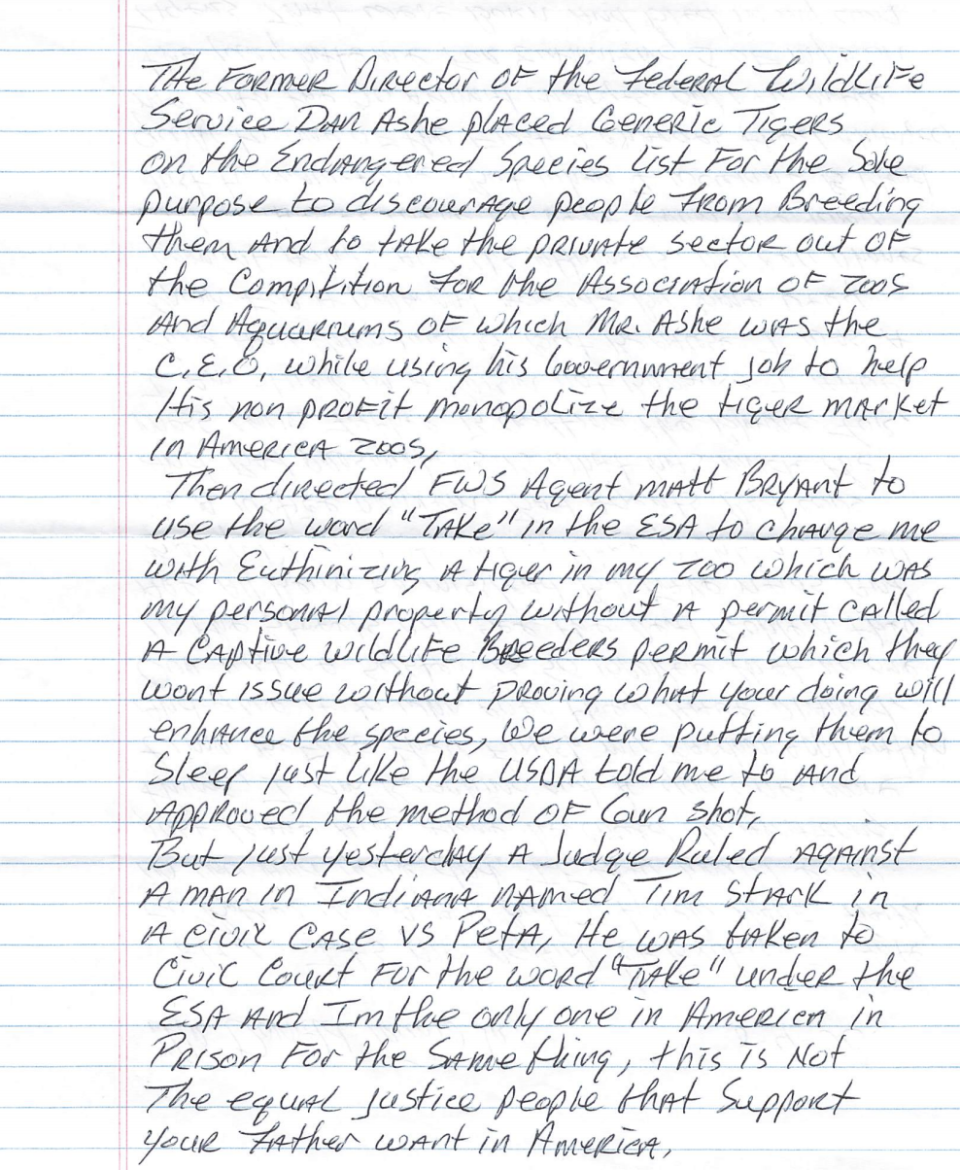 The Former Director of the Federal Wildlife
Service Dan Ashe placed Generic Tigers
on the Endangered Species list For the Sole
purpose to discourage people From Breeding
them and to take the private sector out of
the Compitition For the Association of Zoos
And Aquariums of which Mr. Ashe was the
C.E.O, while using his Government job to help
His non profit monopolize the tiger market
in America Zoos,
Then directed FWS Agent Matt Bryant to
use the word "Take" in the ESA to charge me
with Euthinizing a tiger in my zoo which was
my personal property without a permit called
A Captive wildlife Breeders permit which they
wont issue without proving what your doing will
enhance the species, We were putting them to
Sleep just like the USDA told me to and
Approved the method of Gun shot,
But just yesterday A Judge Ruled against
A man in Indiana named Tim Stark in
A civil case vs Peta, He was taken to
Civil Court For the word "Take" under the
ESA and Im the only one in America in
Prison For the Same thing, this is Not
The equal justice people that Support
your Father want in America,